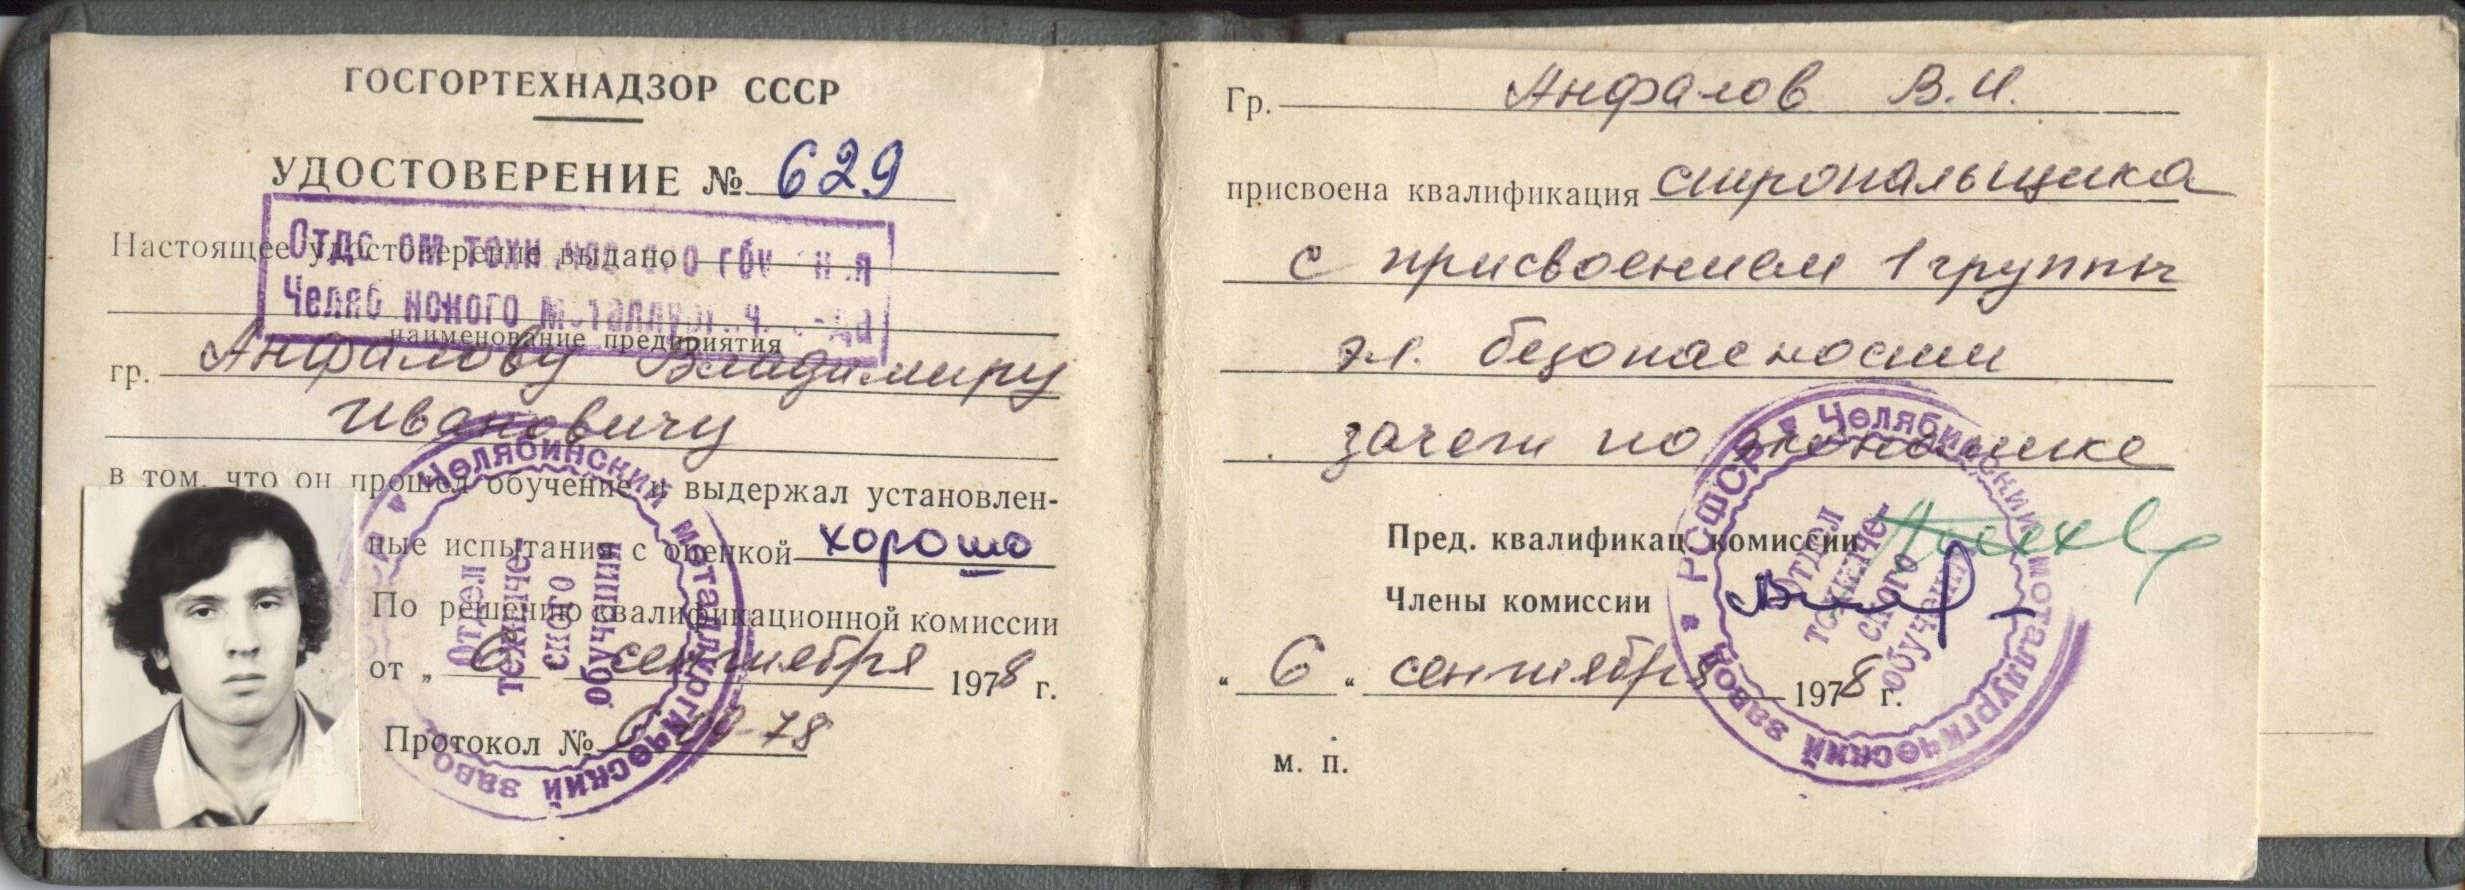 ГОСГОРТЕХНАДЗОР СССР
УДОСТОВЕРЕНИЕ № 629
Настоящее удостоверение выдано
наименование предприятия
гр. Анфалову Владимиру
Ивановичу
в том, что он прошел обучение и выдержал установлен-
ные испытания с оценкой хорошо
По решению квалификационной комиссии
от „ 6 “ сентября 1978 г.
Протокол №
Челябинский металлургический завод
Отдел
техниче-
ского
обучения
Гр. Анфалов В.И.
присвоена квалификация стропальщика
с присвоением 1 группы
эл. безопасности
зачет по экономике
Пред. квалификац. комиссии
Члены комиссии
„ 6 “ сентября 1978 г.
м. п.
РСФСР Челябинский металлургический завод
Отдел
техниче-
ского
обучения